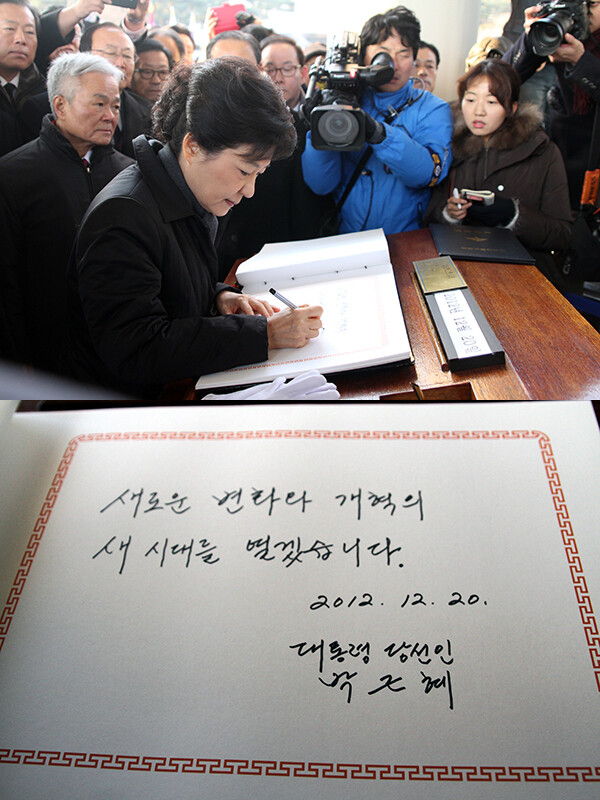 2012년 12월 20일
새로운 변화와 개혁의
새 시대를 열겠습니다.
2012. 12. 20.
대통령 당선인
박근혜